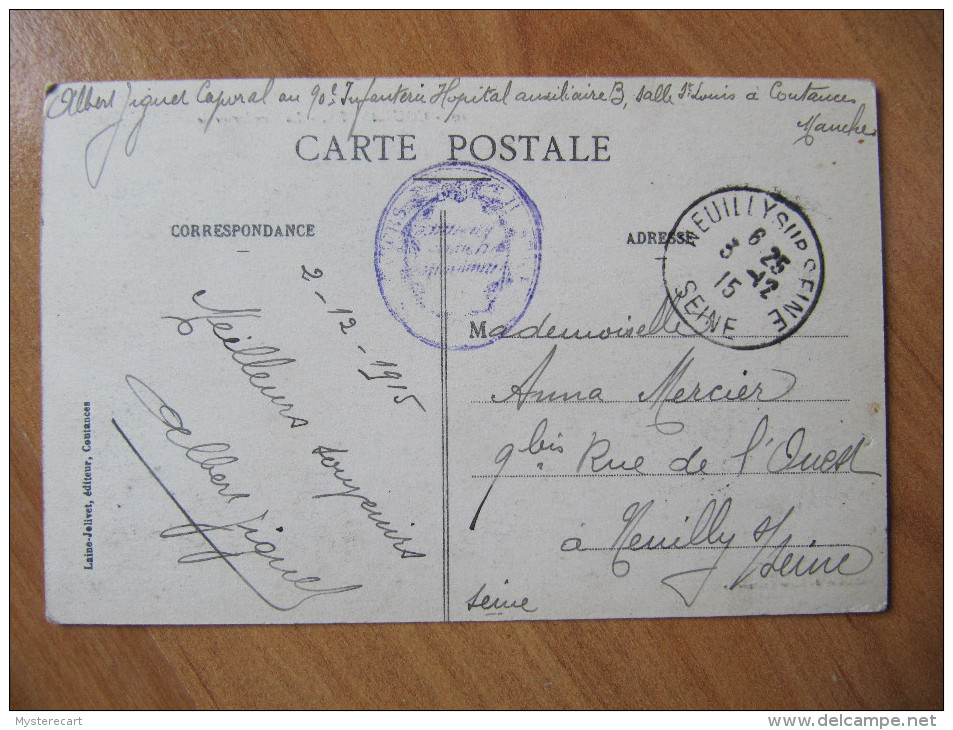 Albert Jiguel Caporal au 90e Infanterie Hopital auxiliaire B, salle St Louis à Coutances
Manche
CARTE POSTALE
CORRESPONDANCE
2-12-1915
Meilleurs souvenirs
Albert Jiguel
Laine-Jolivet, éditeur, Coutances
ADRESSE
NEUILLY SUR SEINE
6 25
3 -12
15
SEINE
Mademoiselle
Anna Mercier
9 bis Rue de l'Ouest
à Neuilly s/Seine
seine
Mysterecart
delcampe.net